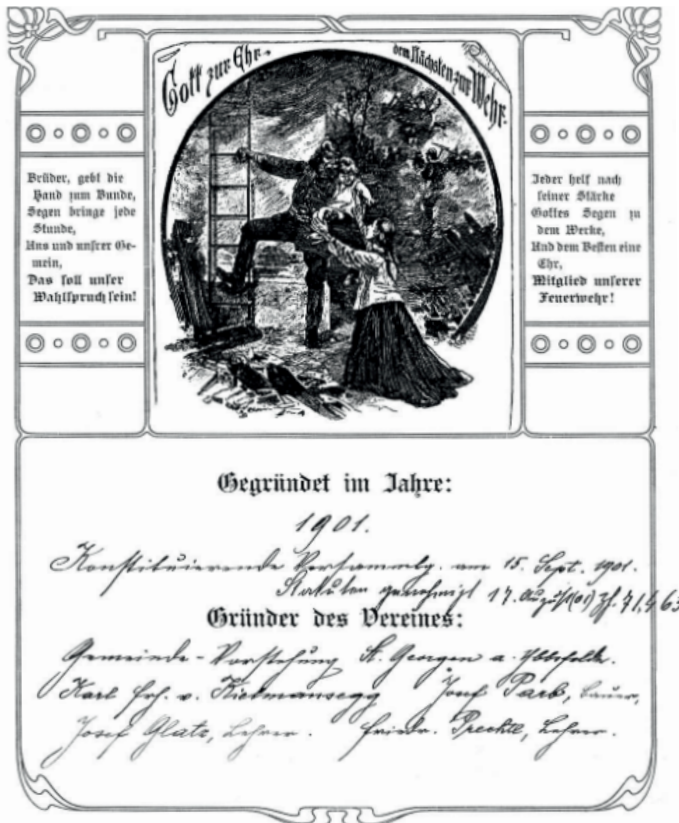 Gott zur Ehr, dem Nächsten zur Wehr.
Brüder, gebt die
Hand zum Bunde,
Segen bringe jede
Stunde,
Uns und unsrer Ge-
mein,
Das soll unser
Wahlspruch sein!
Jeder helf nach
seiner Stärke
Gottes Segen zu
dem Werke,
Und dem Besten eine
Ehr,
Mitglied unserer
Feuerwehr!
Gegründet im Jahre:
1901.
Konstituierende Versammlg. am 15. Sept. 1901.
Statuten genehmigt 17. August (01) Zl. 71.463
Gründer des Vereines:
Gemeinde-Vorstehung St. Georgen a. Ybbsfelde.
Karl Frh. v. Kielmansegg Josef Parb, Bauer,
Josef Glatz, Lehrer. Friedr. Prechtl, Lehrer.